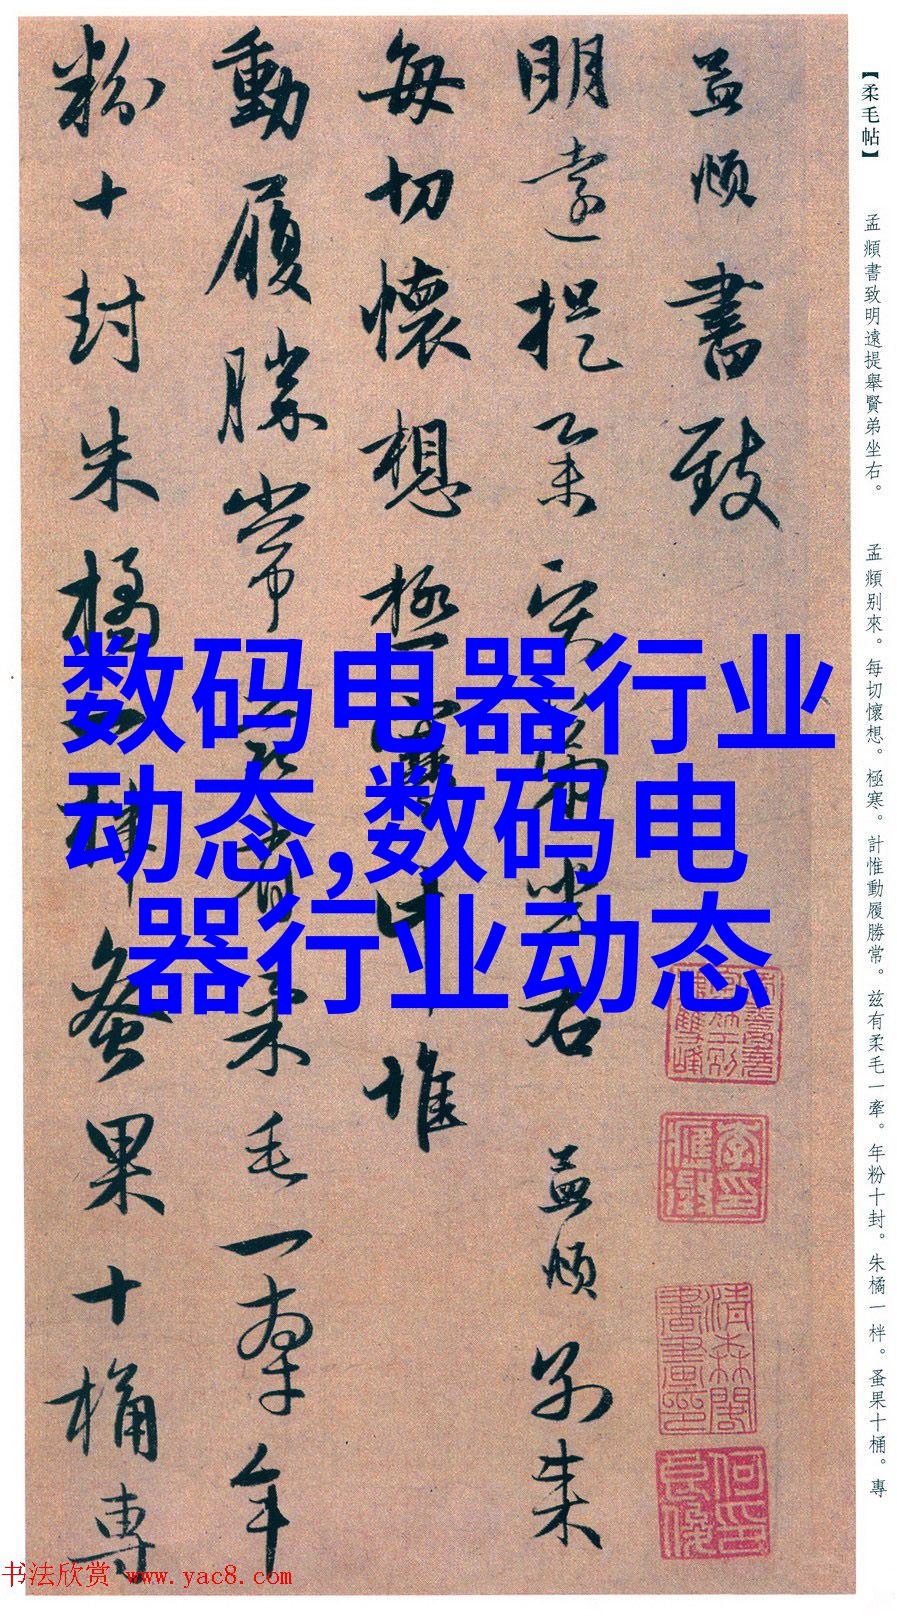 【柔毛帖】
孟頫書致明遠提舉賢弟坐右。
孟頫别來。每切懷想。極寒。計惟動履勝常。兹有柔毛一牽。年粉十封。朱橘一柈。蚤果十桶。專
孟頫書致
明遠提舉賢弟坐右 孟頫别來
每切懷想極寒計惟
動履勝常兹有柔毛一牽年
粉十封朱橘一柈蚤果十桶專
数码电器行业
动态,数码电
器行业动态
书法欣赏 www.yac8.com